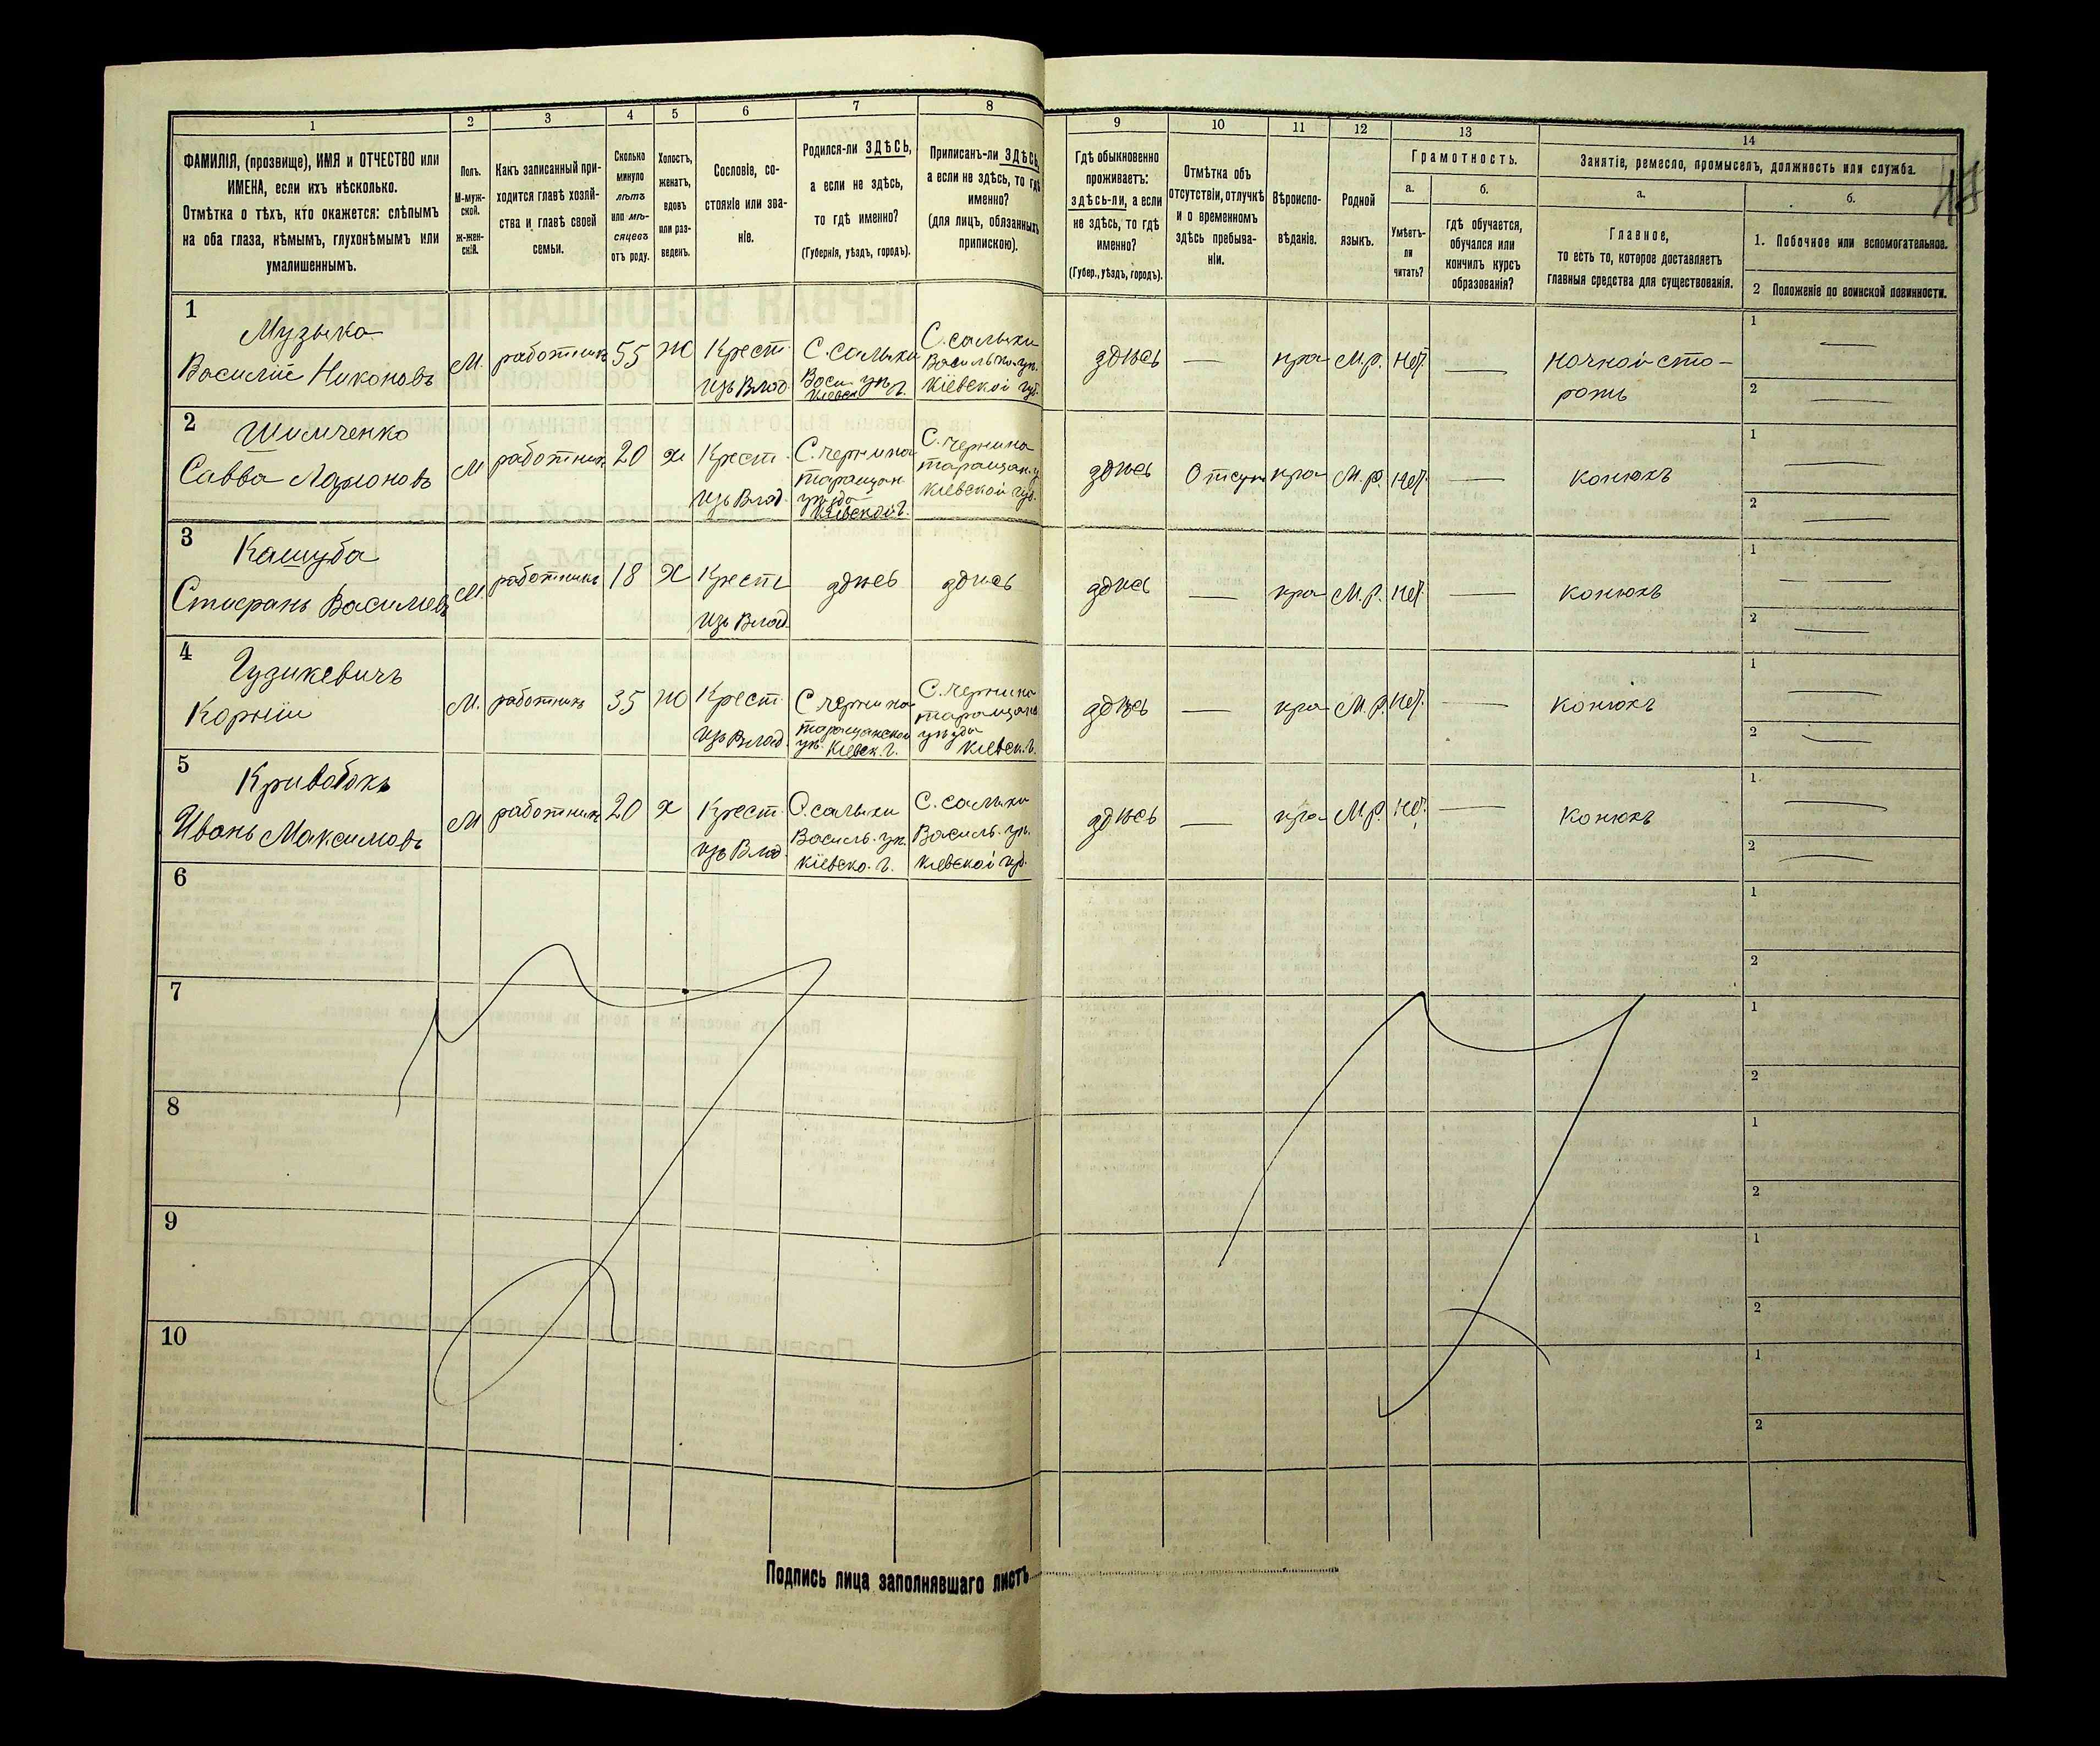 1
2
3
4
5
6
7
8
ФАМИЛІЯ, (прозвище), ИМЯ и ОТЧЕСТВО или
ИМЕНА, если ихъ нѣсколько.
Отмѣтка о тѣхъ, кто окажется: слѣпымъ
на оба глаза, нѣмымъ, глухонѣмымъ или
умалишеннымъ.
Полъ.
М-муж-
ской.
ж-жен-
скій.
Какъ записанный при-
ходится главѣ хозяй-
ства и главѣ своей
семьи.
Сколько
минуло
лѣтъ
или мѣ-
сяцевъ
отъ роду.
Холостъ,
женатъ,
вдовъ
или раз-
веденъ.
Сословіе, со-
стояніе или зва-
ніе.
Родился-ли ЗДѢСЬ,
а если не здѣсь,
то гдѣ именно?
(Губернія, уѣздъ, городъ).
Приписанъ-ли ЗДѢСЬ,
а если не здѣсь, то гдѣ
именно?
(для лицъ, обязанныхъ
припискою).
9
10
11
12
13
14
Гдѣ обыкновенно
проживаетъ:
здѣсь-ли, а если
не здѣсь, то гдѣ
именно?
(Губер., уѣздъ, городъ).
Отмѣтка объ
отсутствіи, отлучкѣ
и о временномъ
здѣсь пребыва-
ніи.
Вѣроиспо-
вѣданіе.
Родной
языкъ.
Грамотность.
а.
Умѣетъ-
ли
читать?
б.
гдѣ обучается,
обучался или
кончилъ курсъ
образованія?
Занятіе, ремесло, промыселъ, должность или служба.
а.
Главное,
то есть то, которое доставляетъ
главныя средства для существованія.
б.
1. Побочное или вспомогательное.
2 Положеніе по воинской повинности.
1
Музыка
Василій Никоновъ
М.
работникъ
55
ж
Крест.
изъ Влад.
С. Сальхи
Васи. уѣ
Кіевск Г.
С. Сальхи
Василько. уѣ.
Кіевской губ.
здѣсь
—
пра
М.р.
нѣт.
—
ночной сто-
рожъ
1 —
2 —
2
Шимченко
Савва Ларіоновъ
М
работник
20
х
Крест.
изъ Влад.
С. Чернина
таращан.
уѣзда
Кіевской Г.
С. Чернина
таращан. у
Кіевской губ.
здѣсь
Отсут
пра
М.р.
нѣт.
—
конюхъ
1 —
2 —
3
Кашуба
Стефанъ Васильев
М.
работникъ
18
х
Крест.
изъ Влад.
здѣсь
здѣсь
здѣсь
—
пра
М.р.
нѣт.
—
конюхъ
1 —
2 —
4
Гузикевичъ
Корній
М.
работникъ
35
ж
Крест.
изъ Влад.
С. Чернина
таращанской
уѣ. Кіевск. Г.
С. Чернина
таращанс
уѣзда
Кіевск. Г.
здѣсь
—
пра
М.р.
нѣт.
—
конюхъ
1 —
2 —
5
Кривобокъ
Иванъ Максимовъ
М
работник
20
х
Крест.
изъ Влад.
С. Сальхи
Василь. уѣ.
Кіевско. Г.
С. Сальхи
Василь. уѣ.
Кіевской губ.
здѣсь
—
пра
М.р.
нѣт.
—
конюхъ
1 —
2 —
6
1
2
7
1
2
8
1
2
9
1
2
10
1
2
Подпись лица заполнявшаго листъ